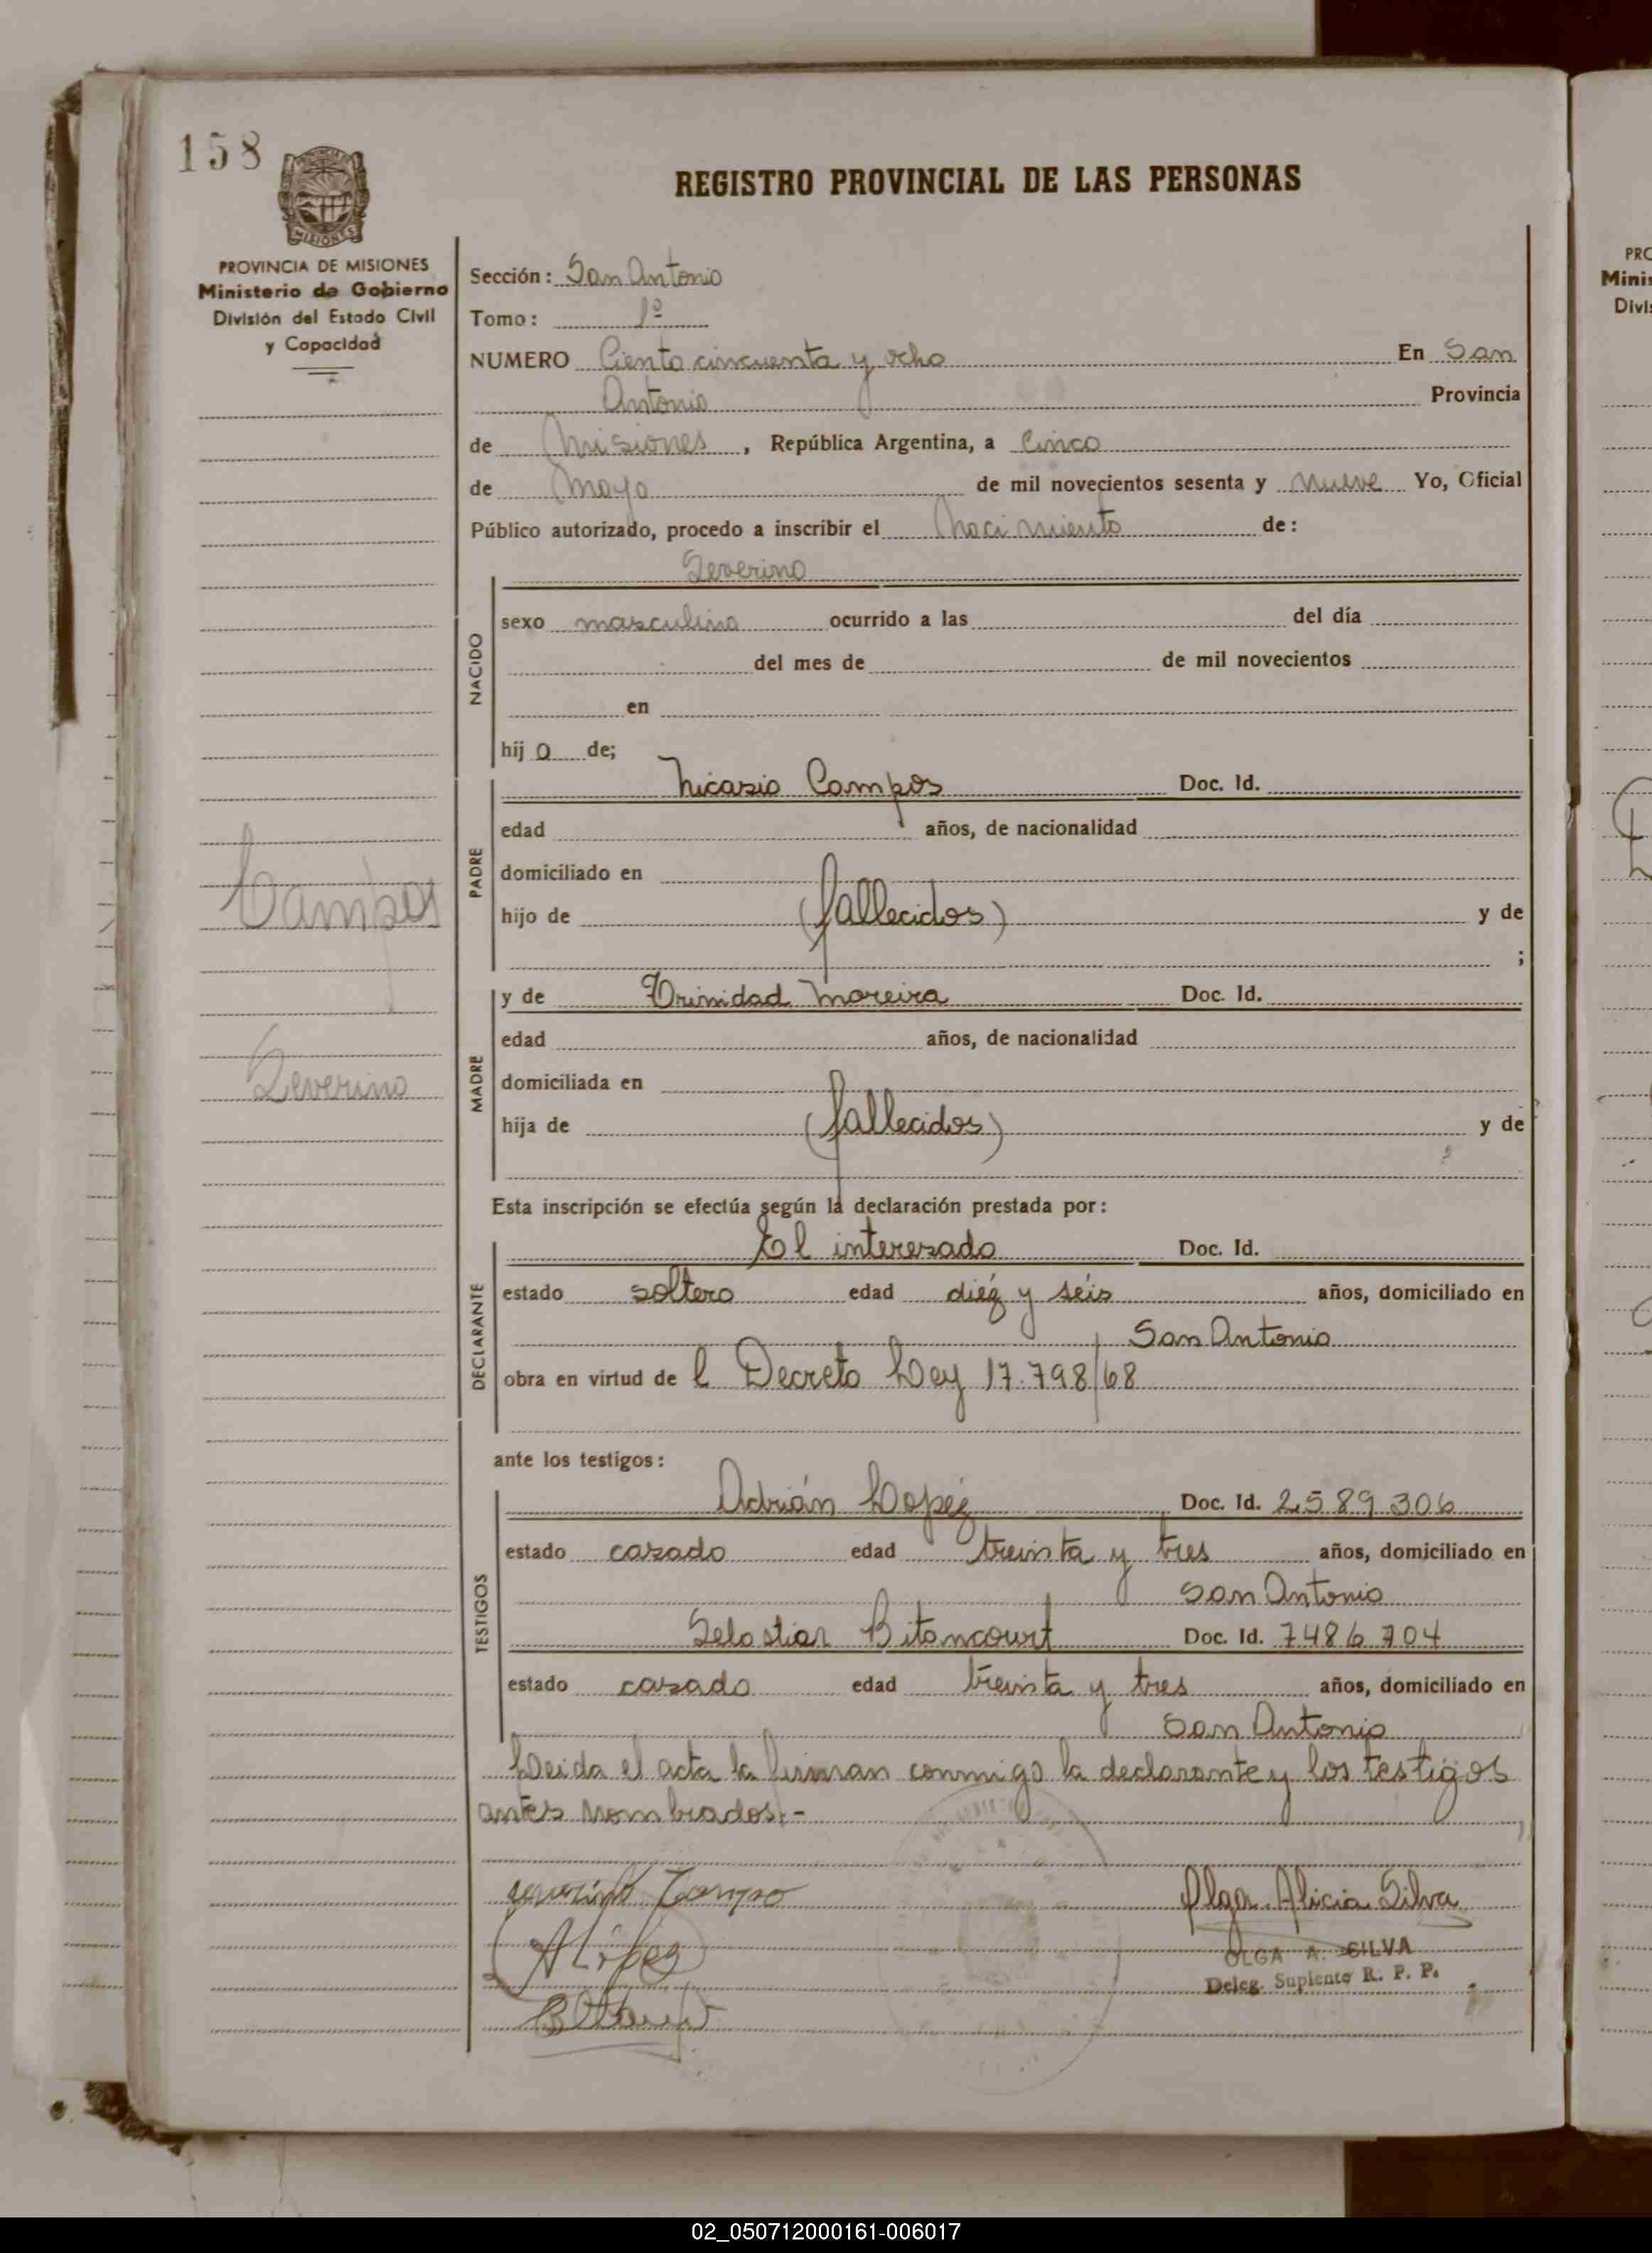 158
REGISTRO PROVINCIAL DE LAS PERSONAS
PROVINCIA DE MISIONES
Ministerio de Gobierno
División del Estado Civil
y Capacidad
Sección: San Antonio
Tomo: 1º
NUMERO Ciento cincuenta y ocho En San
Antonio Provincia
de Misiones, República Argentina, a Cinco
de Mayo de mil novecientos sesenta y nueve Yo, Oficial
Público autorizado, procedo a inscribir el Nacimiento de:
Severino
NACIDO
sexo masculino ocurrido a las del día
del mes de de mil novecientos
en
hij o de;
PADRE
Nicasio Campos Doc. Id.
edad años, de nacionalidad
domiciliado en
hijo de (fallecidos) y de
;
Campos
Severino
MADRE
y de Trinidad Moreira Doc. Id.
edad años, de nacionalidad
domiciliada en
hija de (fallecidos) y de
Esta inscripción se efectúa según la declaración prestada por:
DECLARANTE
El interesado Doc. Id.
estado soltero edad diéz y séis años, domiciliado en
San Antonio
obra en virtud de l Decreto Ley 17.798/68
ante los testigos:
TESTIGOS
Adrián Lopéz Doc. Id. 2.589.306
estado casado edad treinta y tres años, domiciliado en
San Antonio
Sebastian Bitancourt Doc. Id. 7486704
estado casado edad treinta y tres años, domiciliado en
San Antonio
Leida el acta la firman conmigo la declarante y los testigos
antes nombrados.-
severino Campo
Olga Alicia Silva
ALópez
OLGA A. SILVA
Deleg. Suplente R. P. P.
02_050712000161-006017